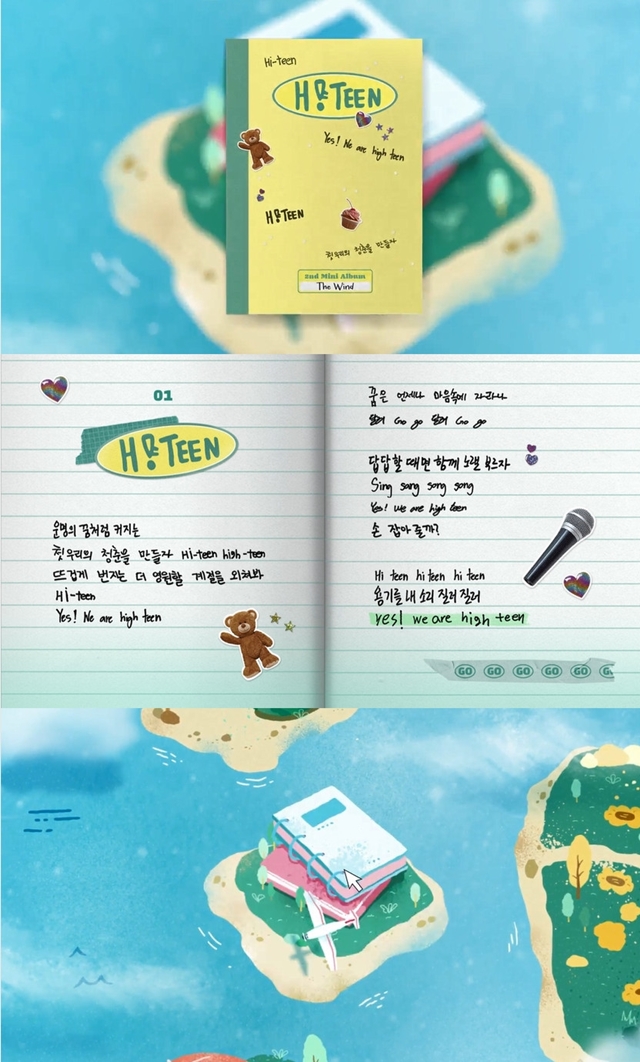 Hi-teen
H!TEEN
Yes! We are high teen
H!TEEN
첫 우리의 청춘을 만들자
2nd Mini Album
The Wind
01
H!TEEN
운명의 꿈처럼 커지는
첫 우리의 청춘을 만들자 Hi-teen high-teen
뜨겁게 번지는 더 영원할 계절을 외쳐봐
Hi-teen
Yes! We are high teen
꿈은 언제나 마음속에 자라나
달려 Go go 달려 Go go
답답할 때면 함께 노랠 부르자
Sing sang song song
Yes! we are high teen
손 잡아 줄까?
Hi teen hi teen hi teen
용기를 내 소리 질러 질러
yes! we are high teen
GO GO GO GO GO G